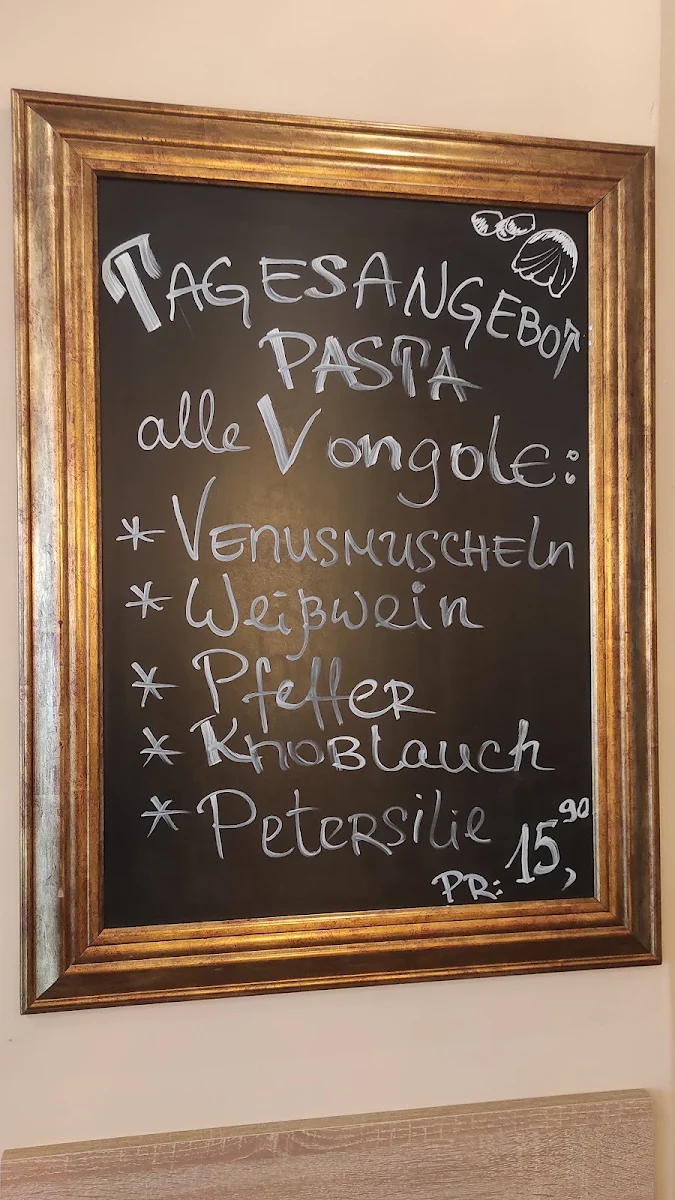 TAGESANGEBOT
PASTA
alle Vongole:
* VENUSMUSCHEln
* Weißwein
* PfeffER
* KnoBlauch
* PeteRsilie
PR: 15,90